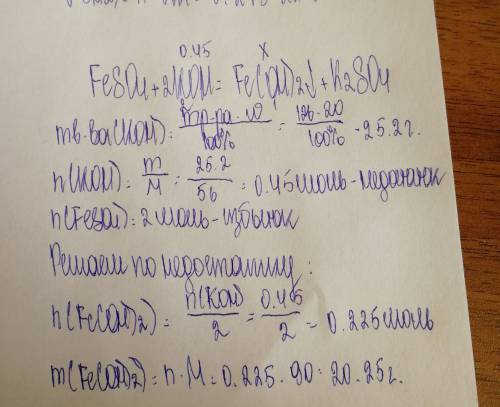 0.45 x
FeSO4+2KOH= Fe(OH)2↓+K2SO4
mв-ва(KOH)= mр-ра·ω/100% = 126·20/100% = 25.2г.
n(KOH)= m/M = 25.2/56 = 0.45моль-недостаток
n(FeSO4)=2моль-избыток
Решаем по недостатку:
n(Fe(OH)2)= n(KOH)/2 = 0.45/2 = 0.225моль
m(Fe(OH)2)= n·M=0.225·90=20.25г.